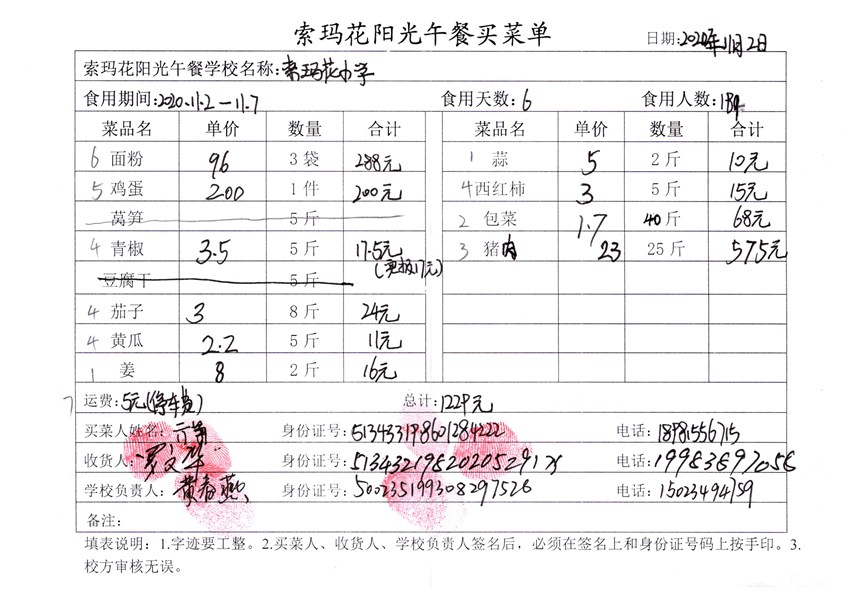 索玛花阳光午餐买菜单
日期:2020年11月2日
索玛花阳光午餐学校名称:索玛花小学
食用期间:2020.11.2—11.7 食用天数:6 食用人数:184
菜品名 单价 数量 合计 菜品名 单价 数量 合计
6 面粉 96 3袋 288元 1 蒜 5 2斤 10元
5 鸡蛋 200 1件 200元 4 西红柿 3 5斤 15元
莴笋 5斤 2 包菜 1.7 40斤 68元
4 青椒 3.5 5斤 17.5元 3 猪肉 23 25斤 575元
(实报17元)
豆腐干 5斤
4 茄子 3 8斤 24元
4 黄瓜 2.2 5斤 11元
1 姜 8 2斤 16元
7 运费:5元(停车费) 总计:1229元
买菜人姓名: 身份证号:513433198601284222 电话:18981556715
收货人: 身份证号:51343219820205291X 电话:19983897056
学校负责人:黄春燕 身份证号:500235199308297526 电话:15023494759
备注:
填表说明:1.字迹要工整。2.买菜人、收货人、学校负责人签名后,必须在签名上和身份证号码上按手印。3.
校方审核无误。